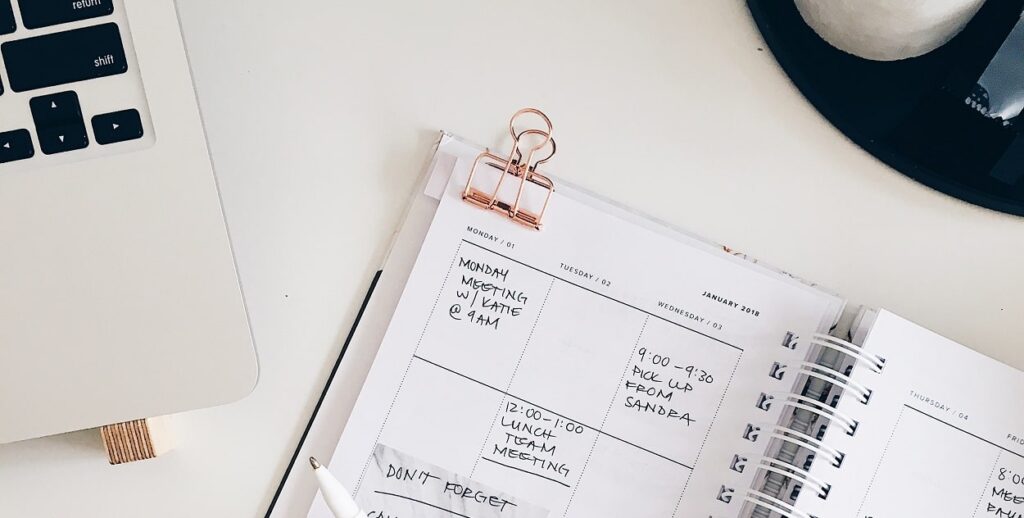 return
shift
JANUARY 2018
MONDAY / 01
TUESDAY / 02
WEDNESDAY / 03
MONDAY
MEETING
W/ KATIE
@ 9AM
9:00 - 9:30
PICK UP
FROM
SANDRA
12:00-1:00
LUNCH
TEAM
MEETING
DON'T FORGET
THURSDAY / 04